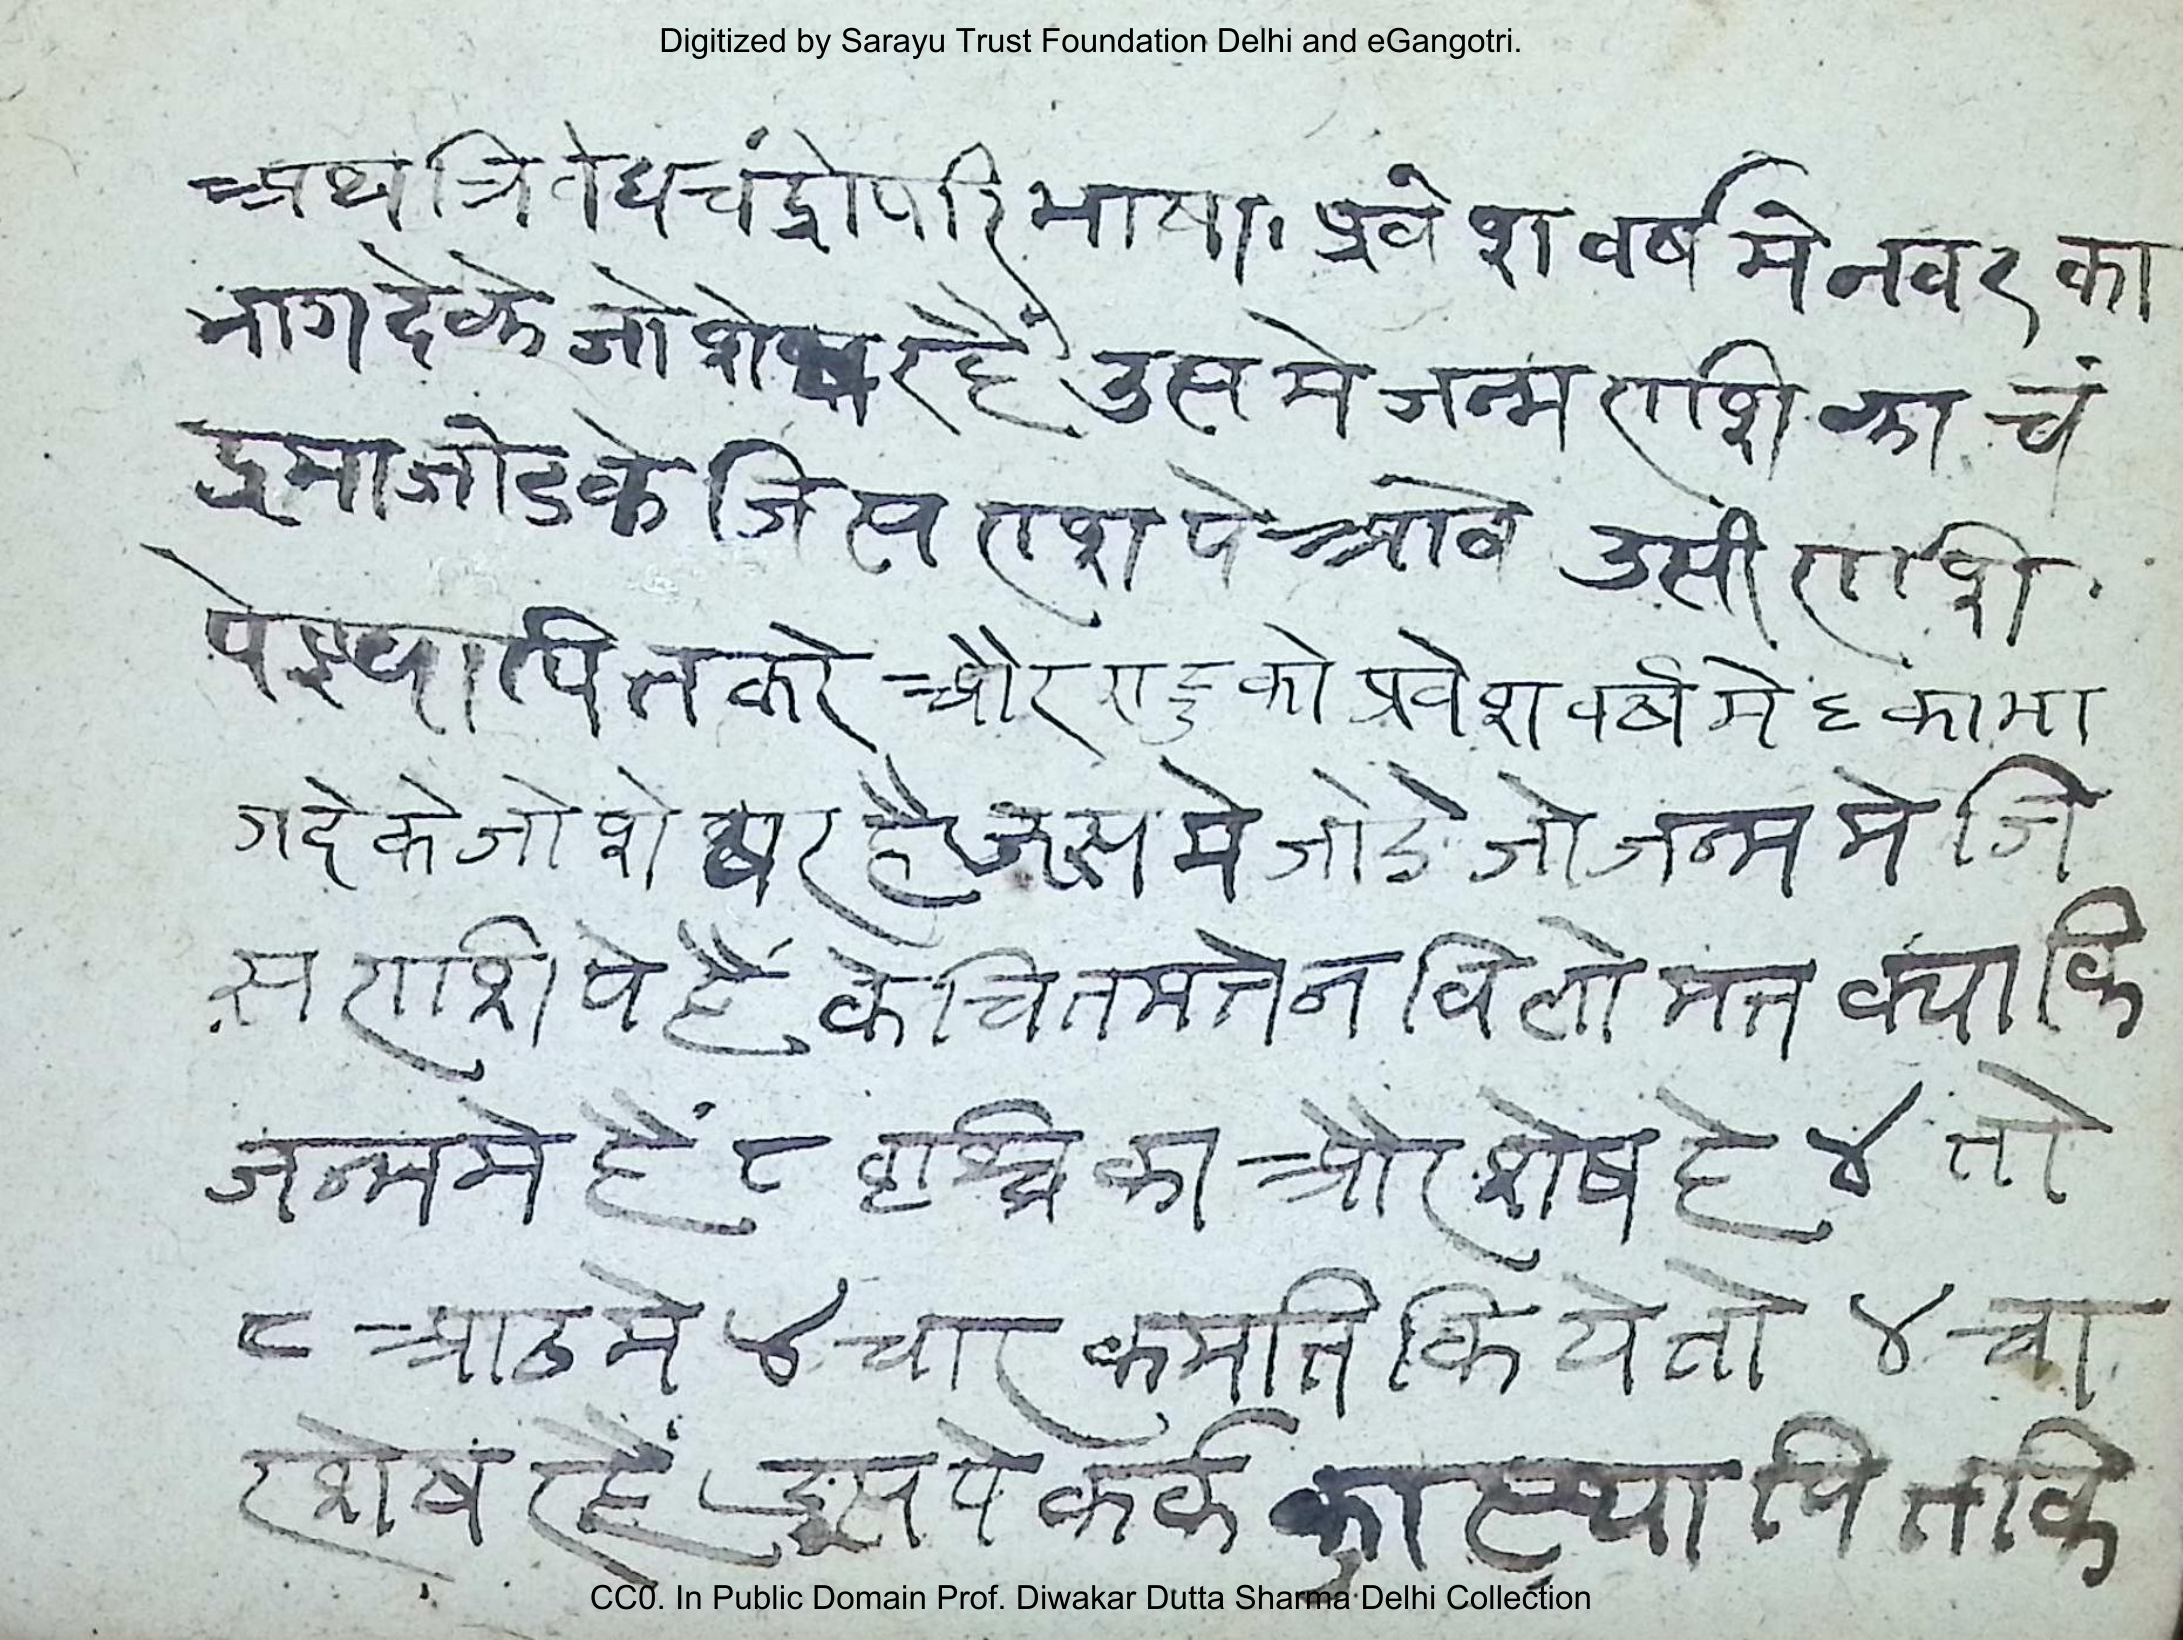 Digitized by Sarayu Trust Foundation Delhi and eGangotri.
अथ त्रिवेधचंद्रोपरि भाषा। प्रवेश वर्ष मे नवर का
भाग देके जो शेष रहैं उस मे जन्म राशि का चं
द्रमा जोडके जिस राश पे आवे उसी राशि
पे स्थापित करे और राहु को प्रवेश वर्ष मे ६ का भा
ग देके जो शेष रहै उस मे जोडे जो जन्म मे जि
स राशि पे हैं केचित मतेन विलो मत क्याकि
जन्म मे हैं ८ वृश्चि का और शेष हे ४ तो
८ आठ मे ४ चार कमति किये तो ४ चा
र शेष रहैं इस पे कर्क का स्थापित कि
CC0. In Public Domain Prof. Diwakar Dutta Sharma Delhi Collection